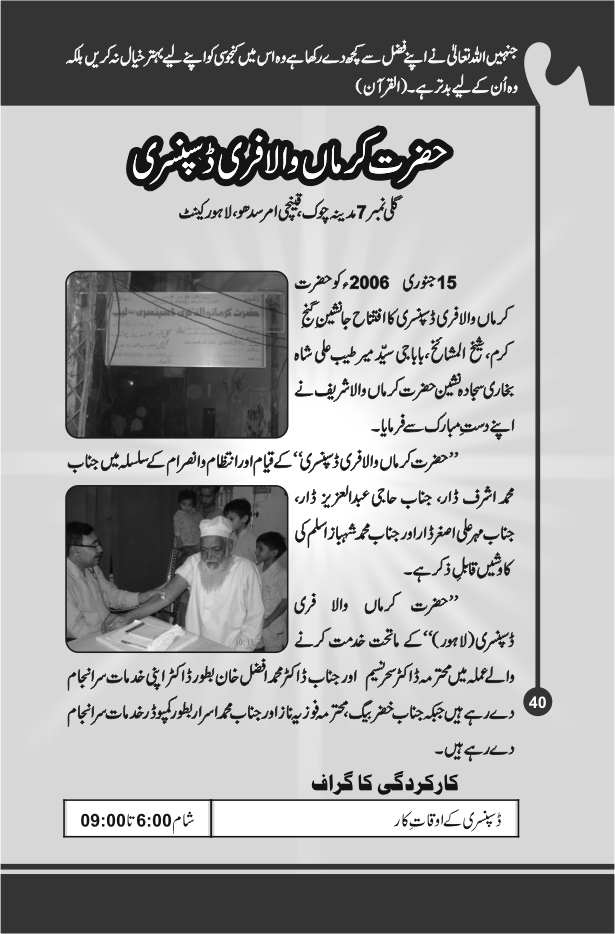 جنہیں اللہ تعالیٰ نے اپنے فضل سے کچھ دے رکھا ہے وہ اس میں کنجوسی کو اپنے لیے بہتر خیال نہ کریں بلکہ
وہ اُن کے لیے بدتر ہے۔ (القرآن)
حضرت کرماں والا فری ڈسپنسری
گلی نمبر 7 مدینہ چوک، قینچی امر سدھو، لاہور کینٹ
15 جنوری 2006ء کو حضرت
کرماں والا فری ڈسپنسری کا افتتاح جانشینِ گنجِ
کرم، شیخ المشائخ، باباجی سیّد میر طیب علی شاہ
بخاری سجادہ نشین حضرت کرماں والا شریف نے
اپنے دستِ مبارک سے فرمایا۔
حضرت کرمانوالہ فری ڈسپنسری
”حضرت کرماں والا فری ڈسپنسری“ کے قیام اور انتظام و انصرام کے سلسلہ میں جناب
محمد اشرف ڈار، جناب حاجی عبدالعزیز ڈار،
جناب مہر علی اصغر ڈار اور جناب محمد شہباز اسلم کی
کاوشیں قابلِ ذکر ہے۔
”حضرت کرماں والا فری
ڈسپنسری (لاہور)“ کے ماتحت خدمت کرنے
والے عملہ میں محترمہ ڈاکٹر سحر نسیم اور جناب ڈاکٹر محمد افضل خان بطور ڈاکٹر اپنی خدمات سرانجام
دے رہے ہیں جبکہ جناب خضر بیگ، محترمہ فوزیہ ناز اور جناب محمد اسرار بطور کمپوڈر خدمات سرانجام
دے رہے ہیں۔
40
کارکردگی کا گراف
ڈسپنسری کے اوقاتِ کار
شام 6:00 تا 09:00